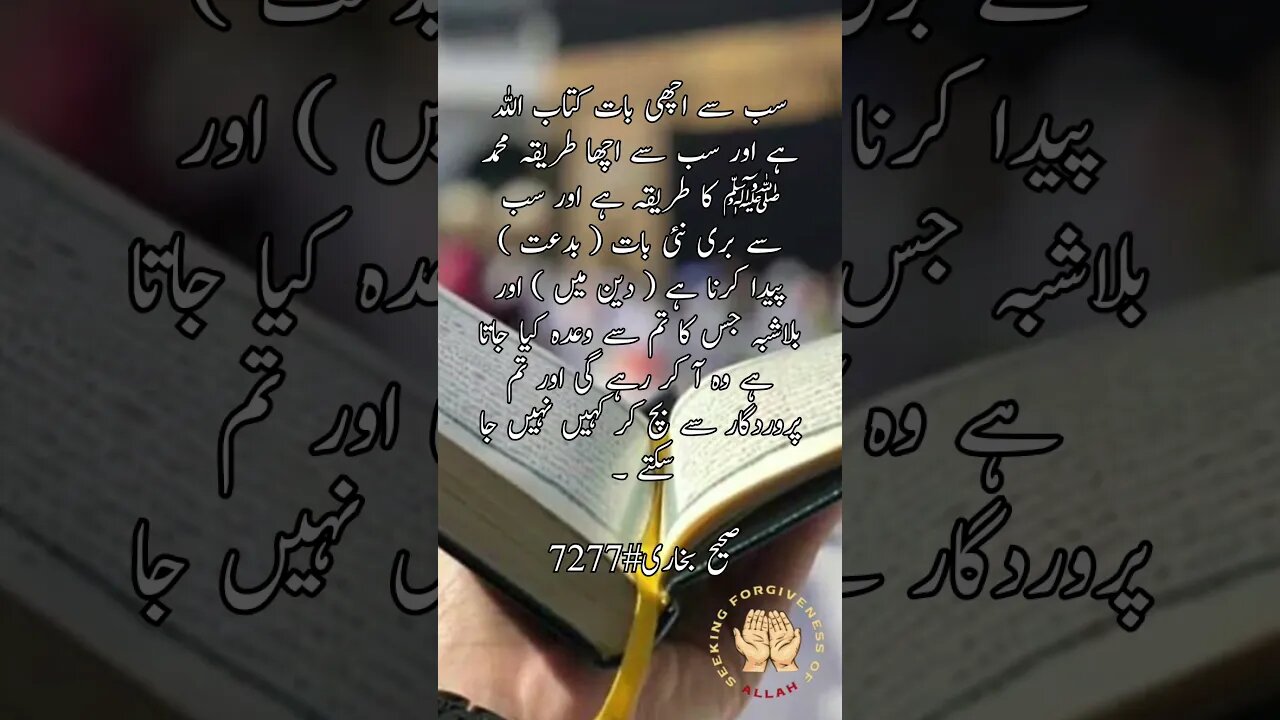 سب سے اچھی بات کتاب اللہ
ہے اور سب سے اچھا طریقہ محمد
ﷺ کا طریقہ ہے اور سب
سے بری نئی بات ( بدعت )
پیدا کرنا ہے ( دین میں ) اور
بلاشبہ جس کا تم سے وعدہ کیا جاتا
ہے وہ آ کر رہے گی اور تم
پروردگار سے بچ کر کہیں نہیں جا
سکتے ۔
صحیح بخاری#7277
SEEKING FORGIVENESS OF
ALLAH